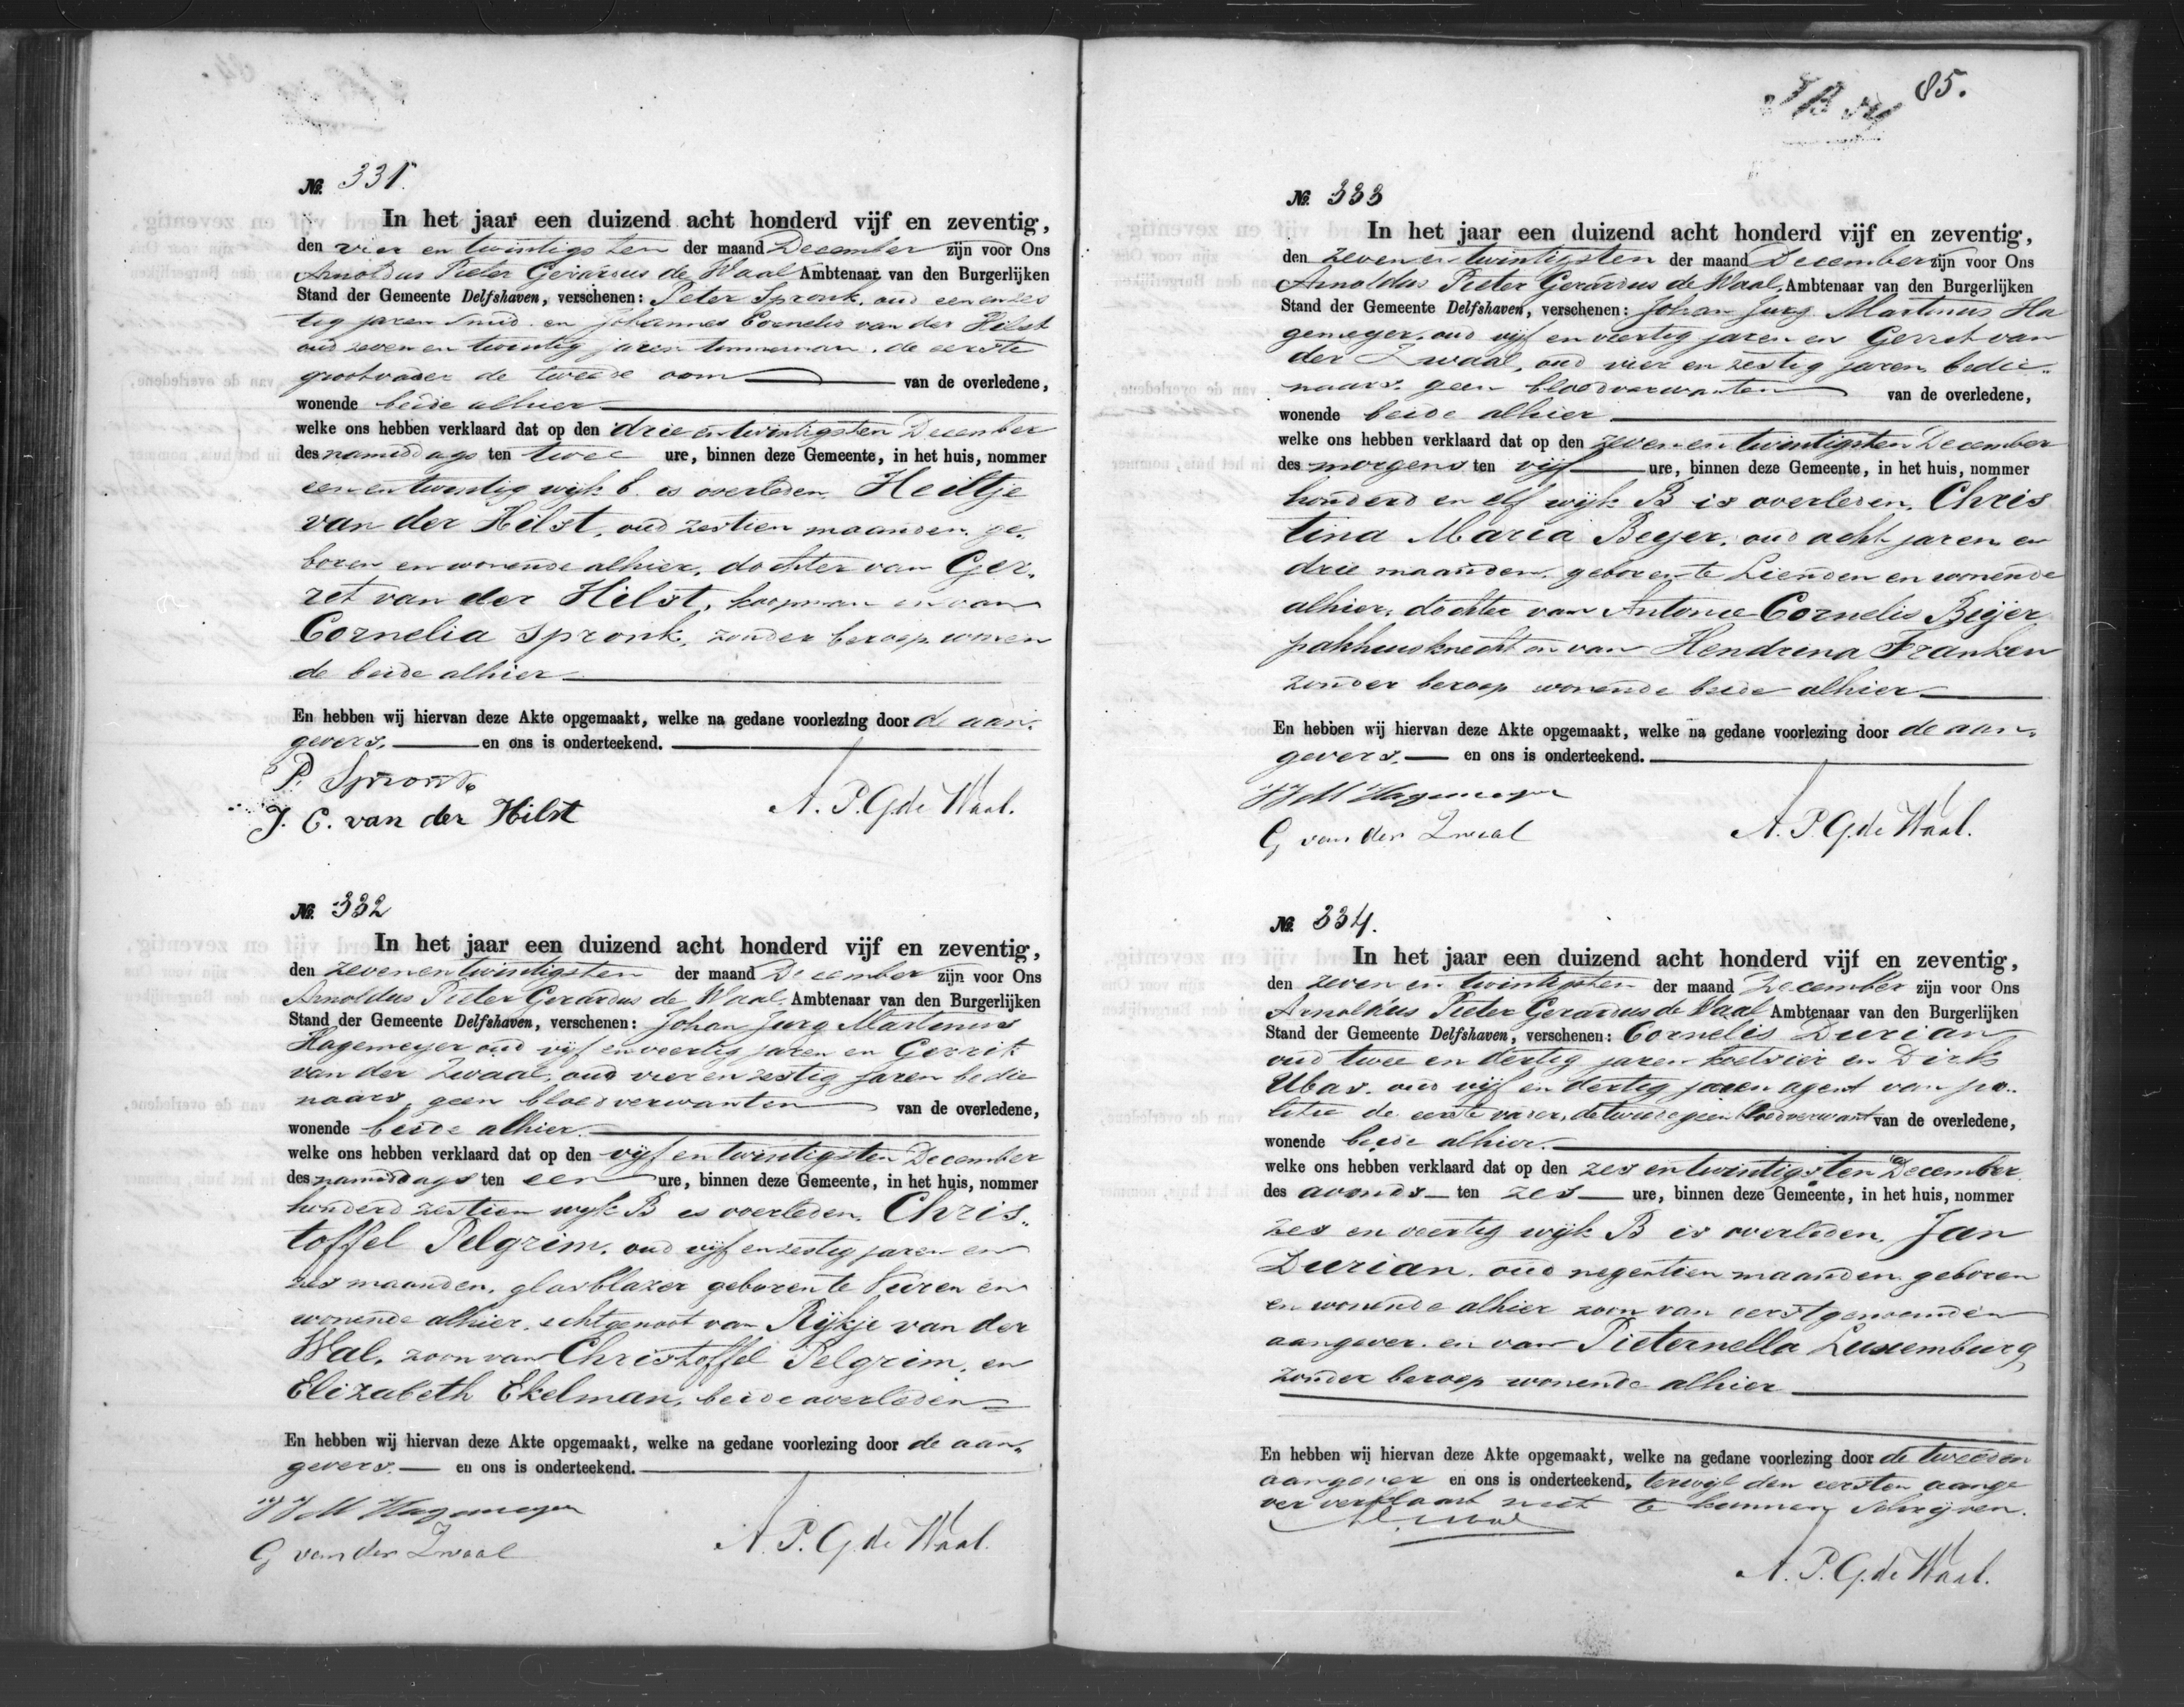 No. 331.
In het jaar een duizend acht honderd vijf en zeventig,
den vier en twintigsten der maand December zijn voor Ons
Arnoldus Pieter Gerardus de Waal Ambtenaar van den Burgerlijken
Stand der Gemeente Delfshaven, verschenen: Peter Spronk, oud een en zes
tig jaren smid en Johannes Cornelis van der Hilst
oud zeven en twintig jaren timmerman, de eerste
grootvader de tweede oom van de overledene,
wonende beide alhier
welke ons hebben verklaard dat op den drie en twintigsten December
des namiddags ten twee ure, binnen deze Gemeente, in het huis, nommer
een en twintig wijk b. is overleden Heiltje
van der Hilst, oud zestien maanden, ge-
boren en wonende alhier, dochter van Ger-
ret van der Hilst, koopman en van
Cornelia Spronk, zonder beroep wonen
de beide alhier
En hebben wij hiervan deze Akte opgemaakt, welke na gedane voorlezing door de aan-
gevers, en ons is onderteekend.
P. Spronk
J. C. van der Hilst A. P. G. de Waal.
No. 332
In het jaar een duizend acht honderd vijf en zeventig,
den zeven en twintigsten der maand December zijn voor Ons
Arnoldus Pieter Gerardus de Waal, Ambtenaar van den Burgerlijken
Stand der Gemeente Delfshaven, verschenen: Johan Jurg Martinus
Hagemeyer oud vijf en veertig jaren en Gerrit
van der Zwaal, oud vier en zestig jaren bedie
naars, geen bloedverwanten van de overledene,
wonende beide alhier.
welke ons hebben verklaard dat op den vijf en twintigsten December
des namiddags ten een ure, binnen deze Gemeente, in het huis, nommer
honderd zestien wijk B is overleden, Chris-
toffel Pelgrim, oud vijf en zestig jaren en
zes maanden, glasblazer geboren te Vuren en
wonende alhier, echtgenoot van Rijkje van der
Wal, zoon van Christoffel Pelgrim, en
Elizabeth Ekelman, beide overleden
En hebben wij hiervan deze Akte opgemaakt, welke na gedane voorlezing door de aan-
gevers. en ons is onderteekend.
JJM Hagemeyer
G van der Zwaal A. P. G. de Waal.
85.
No. 333
In het jaar een duizend acht honderd vijf en zeventig,
den zeven en twintigsten der maand December zijn voor Ons
Arnoldus Pieter Gerardus de Waal, Ambtenaar van den Burgerlijken
Stand der Gemeente Delfshaven, verschenen: Johan Jurg Martinus Ha
gemeyer, oud vijf en veertig jaren en Gerret van
der Zwaal, oud vier en zestig jaren bedie-
naars, geen bloedverwanten van de overledene,
wonende beide alhier
welke ons hebben verklaard dat op den zeven en twintigsten December
des morgens ten vijf ure, binnen deze Gemeente, in het huis, nommer
honderd en elf wijk B is overleden, Chris
tina Maria Beyer, oud acht jaren en
drie maanden, geboren te Lienden en wonende
alhier, dochter van Antonie Cornelis Beijer
pakhuisknecht en van Hendrina Franken
zonder beroep wonende beide alhier
En hebben wij hiervan deze Akte opgemaakt, welke na gedane voorlezing door de aan-
gevers. en ons is onderteekend.
JJM Hagemeyer
G van der Zwaal A. P. G. de Waal.
No. 334.
In het jaar een duizend acht honderd vijf en zeventig,
den zeven en twintigsten der maand December zijn voor Ons
Arnoldus Pieter Gerardus de Waal Ambtenaar van den Burgerlijken
Stand der Gemeente Delfshaven, verschenen: Cornelis Durian
oud twee en dertig jaren koetsier en Dirk
Ubas, oud vijf en dertig jaren agent van po-
litie de eerste vader, de tweede geen bloedverwant van de overledene,
wonende beide alhier.
welke ons hebben verklaard dat op den zes en twintigsten December
des avonds ten zes ure, binnen deze Gemeente, in het huis, nommer
zes en veertig wijk B is overleden, Jan
Durian, oud negentien maanden geboren
en wonende alhier zoon van eerstgenoemden
aangever, en van Pieternella Luxemburg,
zonder beroep wonende alhier
En hebben wij hiervan deze Akte opgemaakt, welke na gedane voorlezing door de tweeden
aangever en ons is onderteekend, terwijl den eersten aange
ver verklaart niet te kunnen schrijven.
A. P. G. de Waal.